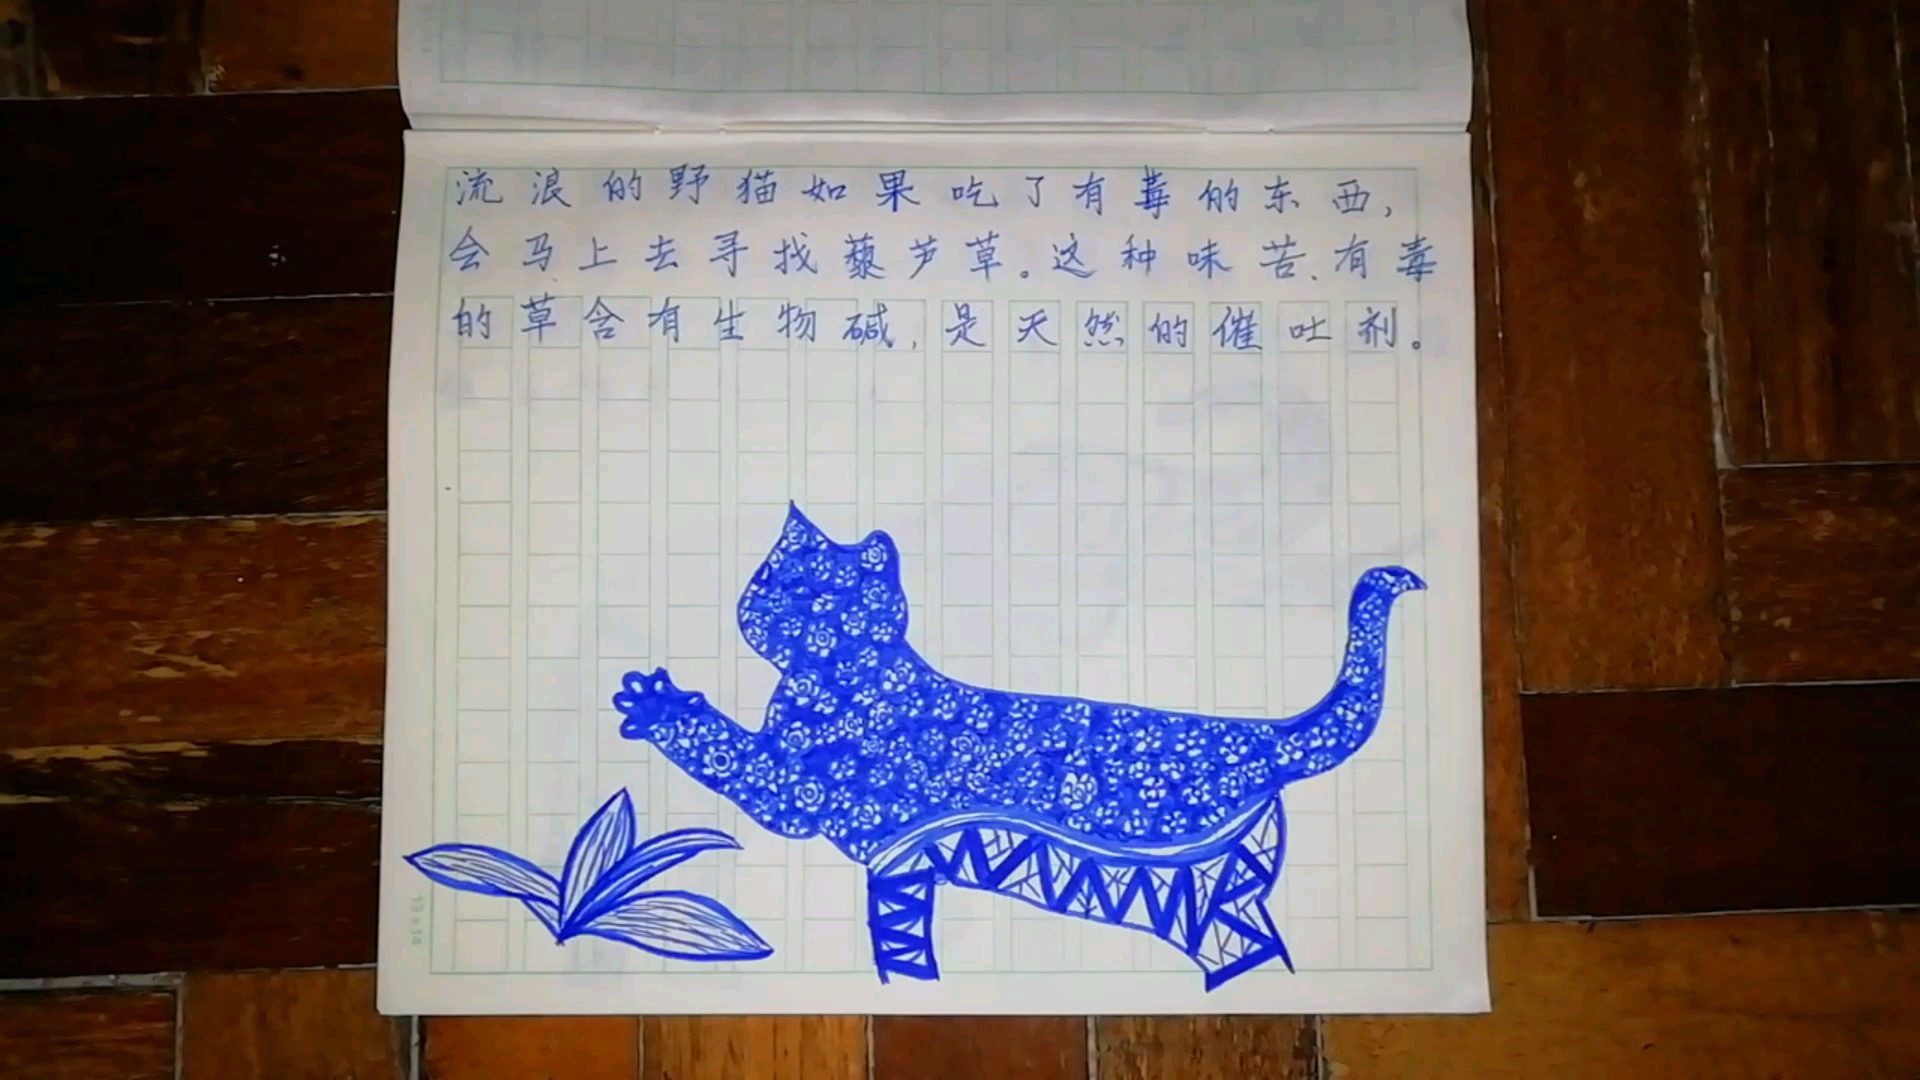 流浪的野猫如果吃了有毒的东西,
会马上去寻找藜芦草。这种味苦、有毒
的草含有生物碱,是天然的催吐剂。
13×14